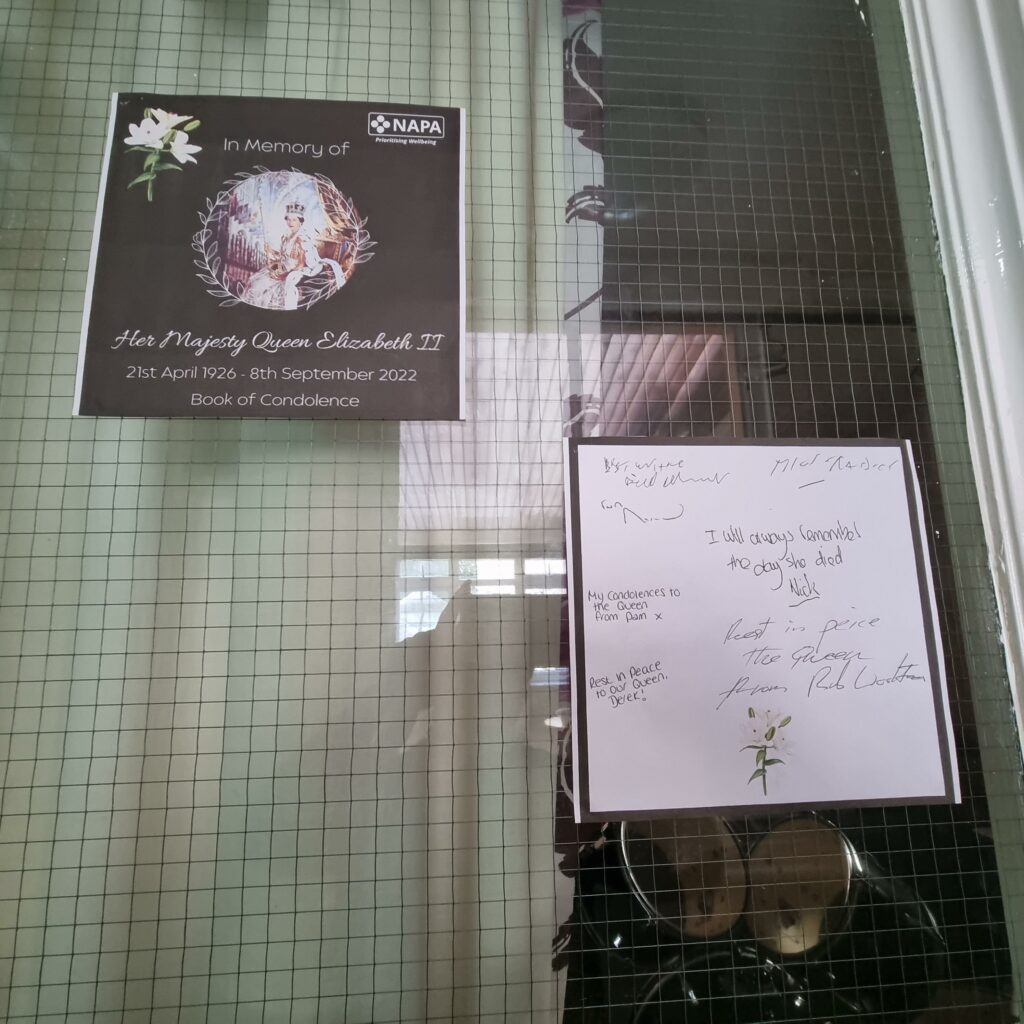 NAPA
Prioritising Wellbeing
In Memory of
Her Majesty Queen Elizabeth II
21st April 1926 - 8th September 2022
Book of Condolence
I will always remember
the day she died
Nick
My Condolences to
the Queen
from Pam x
Rest in peice
the Queen
from Rob
Rest in Peace
to our Queen,
Derek!